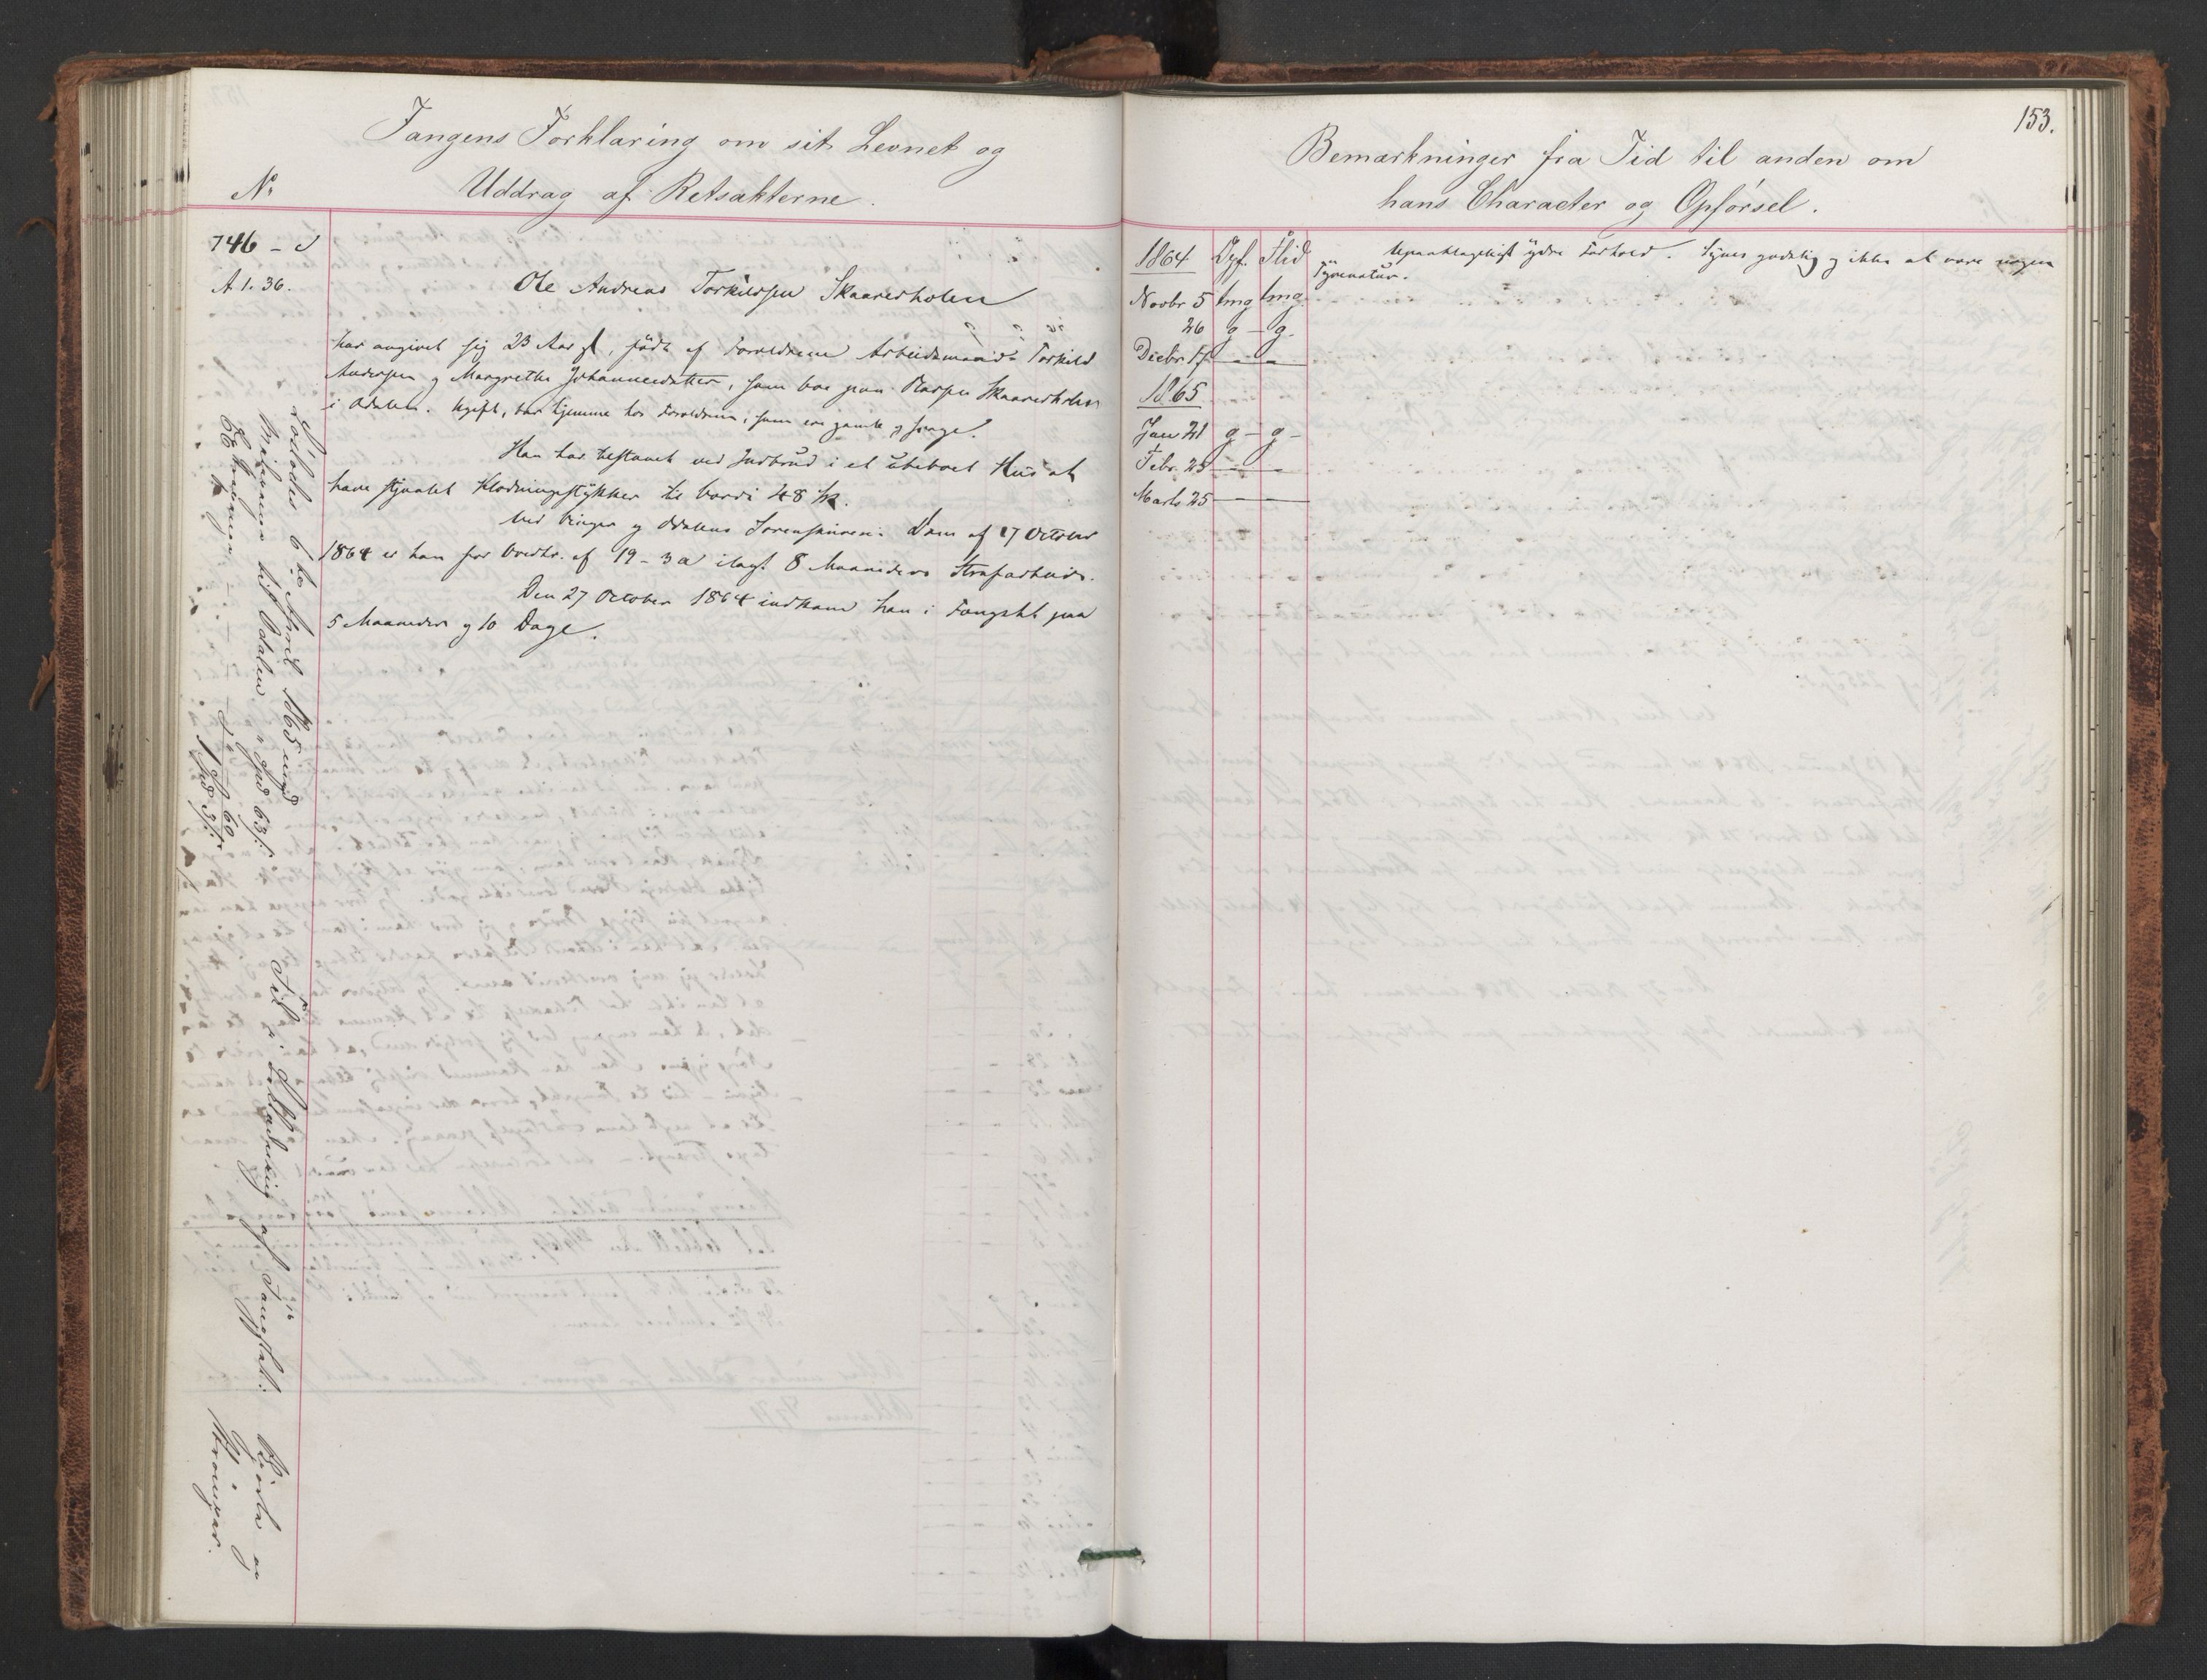 Fangens Forklaring om sit Levnet og
Uddrag af Retsakterne.
No
746 - d
A 1. 36.
Ole Andreas Torkildsen Skaaresholen
har angivet sig 23 Aar gl, født af Forældrene Arbeidsmand Torkild
Andersen og Margrethe Johannesdatter, som boe paa Pladsen Skaaresholen
i Odalen. Ugift, var hjemme hos Forældrene, som ere gamle og svage.
Han har tilstaaet ved Indbrud i et ubeboet Huus at
have stjaalet Klædningsstykker til Værdi 48 sk.
Ved Vinger og Odalens Sorenskriveri Dom af 17 October
1864 er han for Overtr. af 19-3 a ilagt 8 Maaneders Strafarbeide.
Den 27 October 1864 indkom han i Fangslet paa
5 Maaneder og 10 Dage.
Løslades 6te April 1865 med
til Odalen
1 Spd
Til i af Fangslet:
153.
Bemærkninger fra Tid til anden om
hans Character og Opførsel.
1864 Opf. Flid
Novbr 5 tmg tmg
26 g - g.
Decbr 17 - -
1865
Jan 21 g - g -
Febr. 25 - -
Marts 25 - -
Upaaklageligt ydre Forhold. Synes godslig og ikke at være nogen
Tyvenatur.